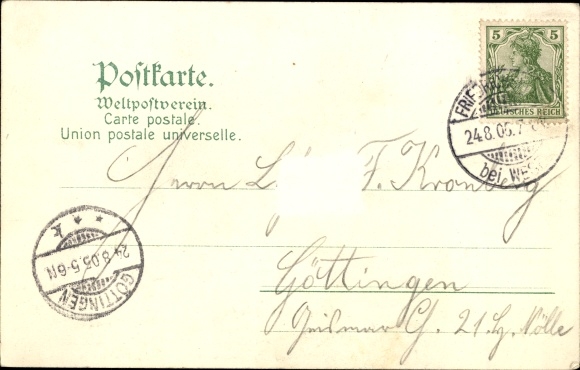 Postkarte.
Weltpostverein.
Carte postale.
Union postale universelle.
5 5
DEUTSCHES REICH
24.8.05.7
bei WES
Herrn F. Kronberg
Göttingen
Geismar Ch. 21
* * *
24.8.05.5-6N.
GÖTTINGEN